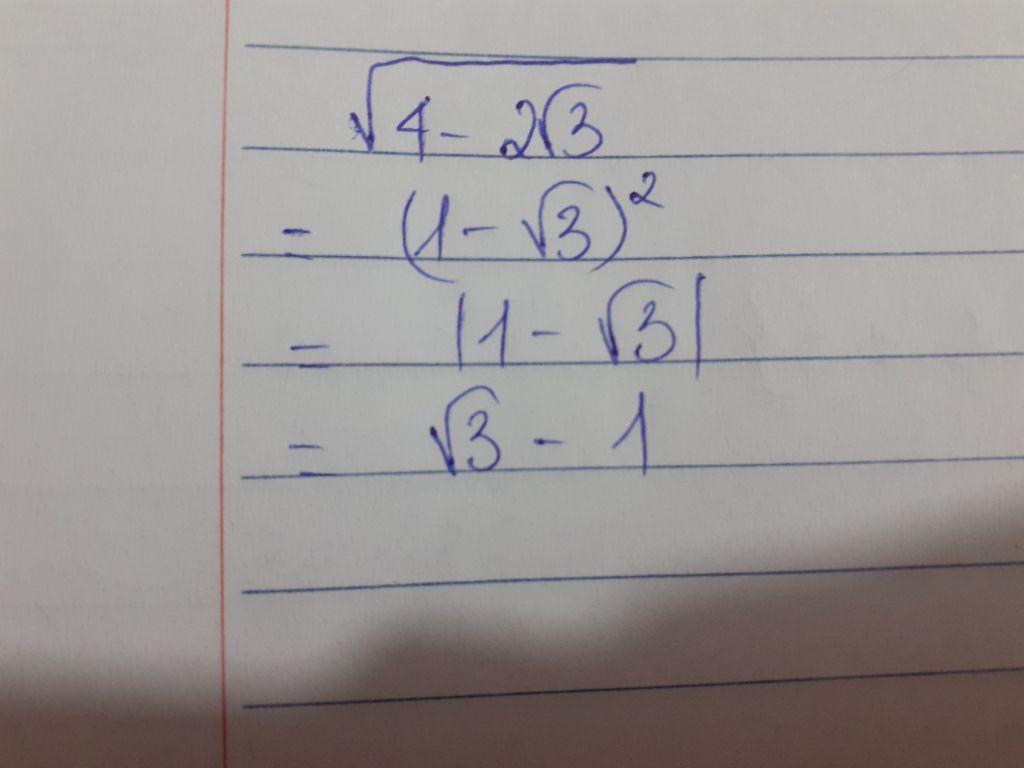 √(4 - 2√3)
= (1 - √3)²
= |1 - √3|
= √3 - 1